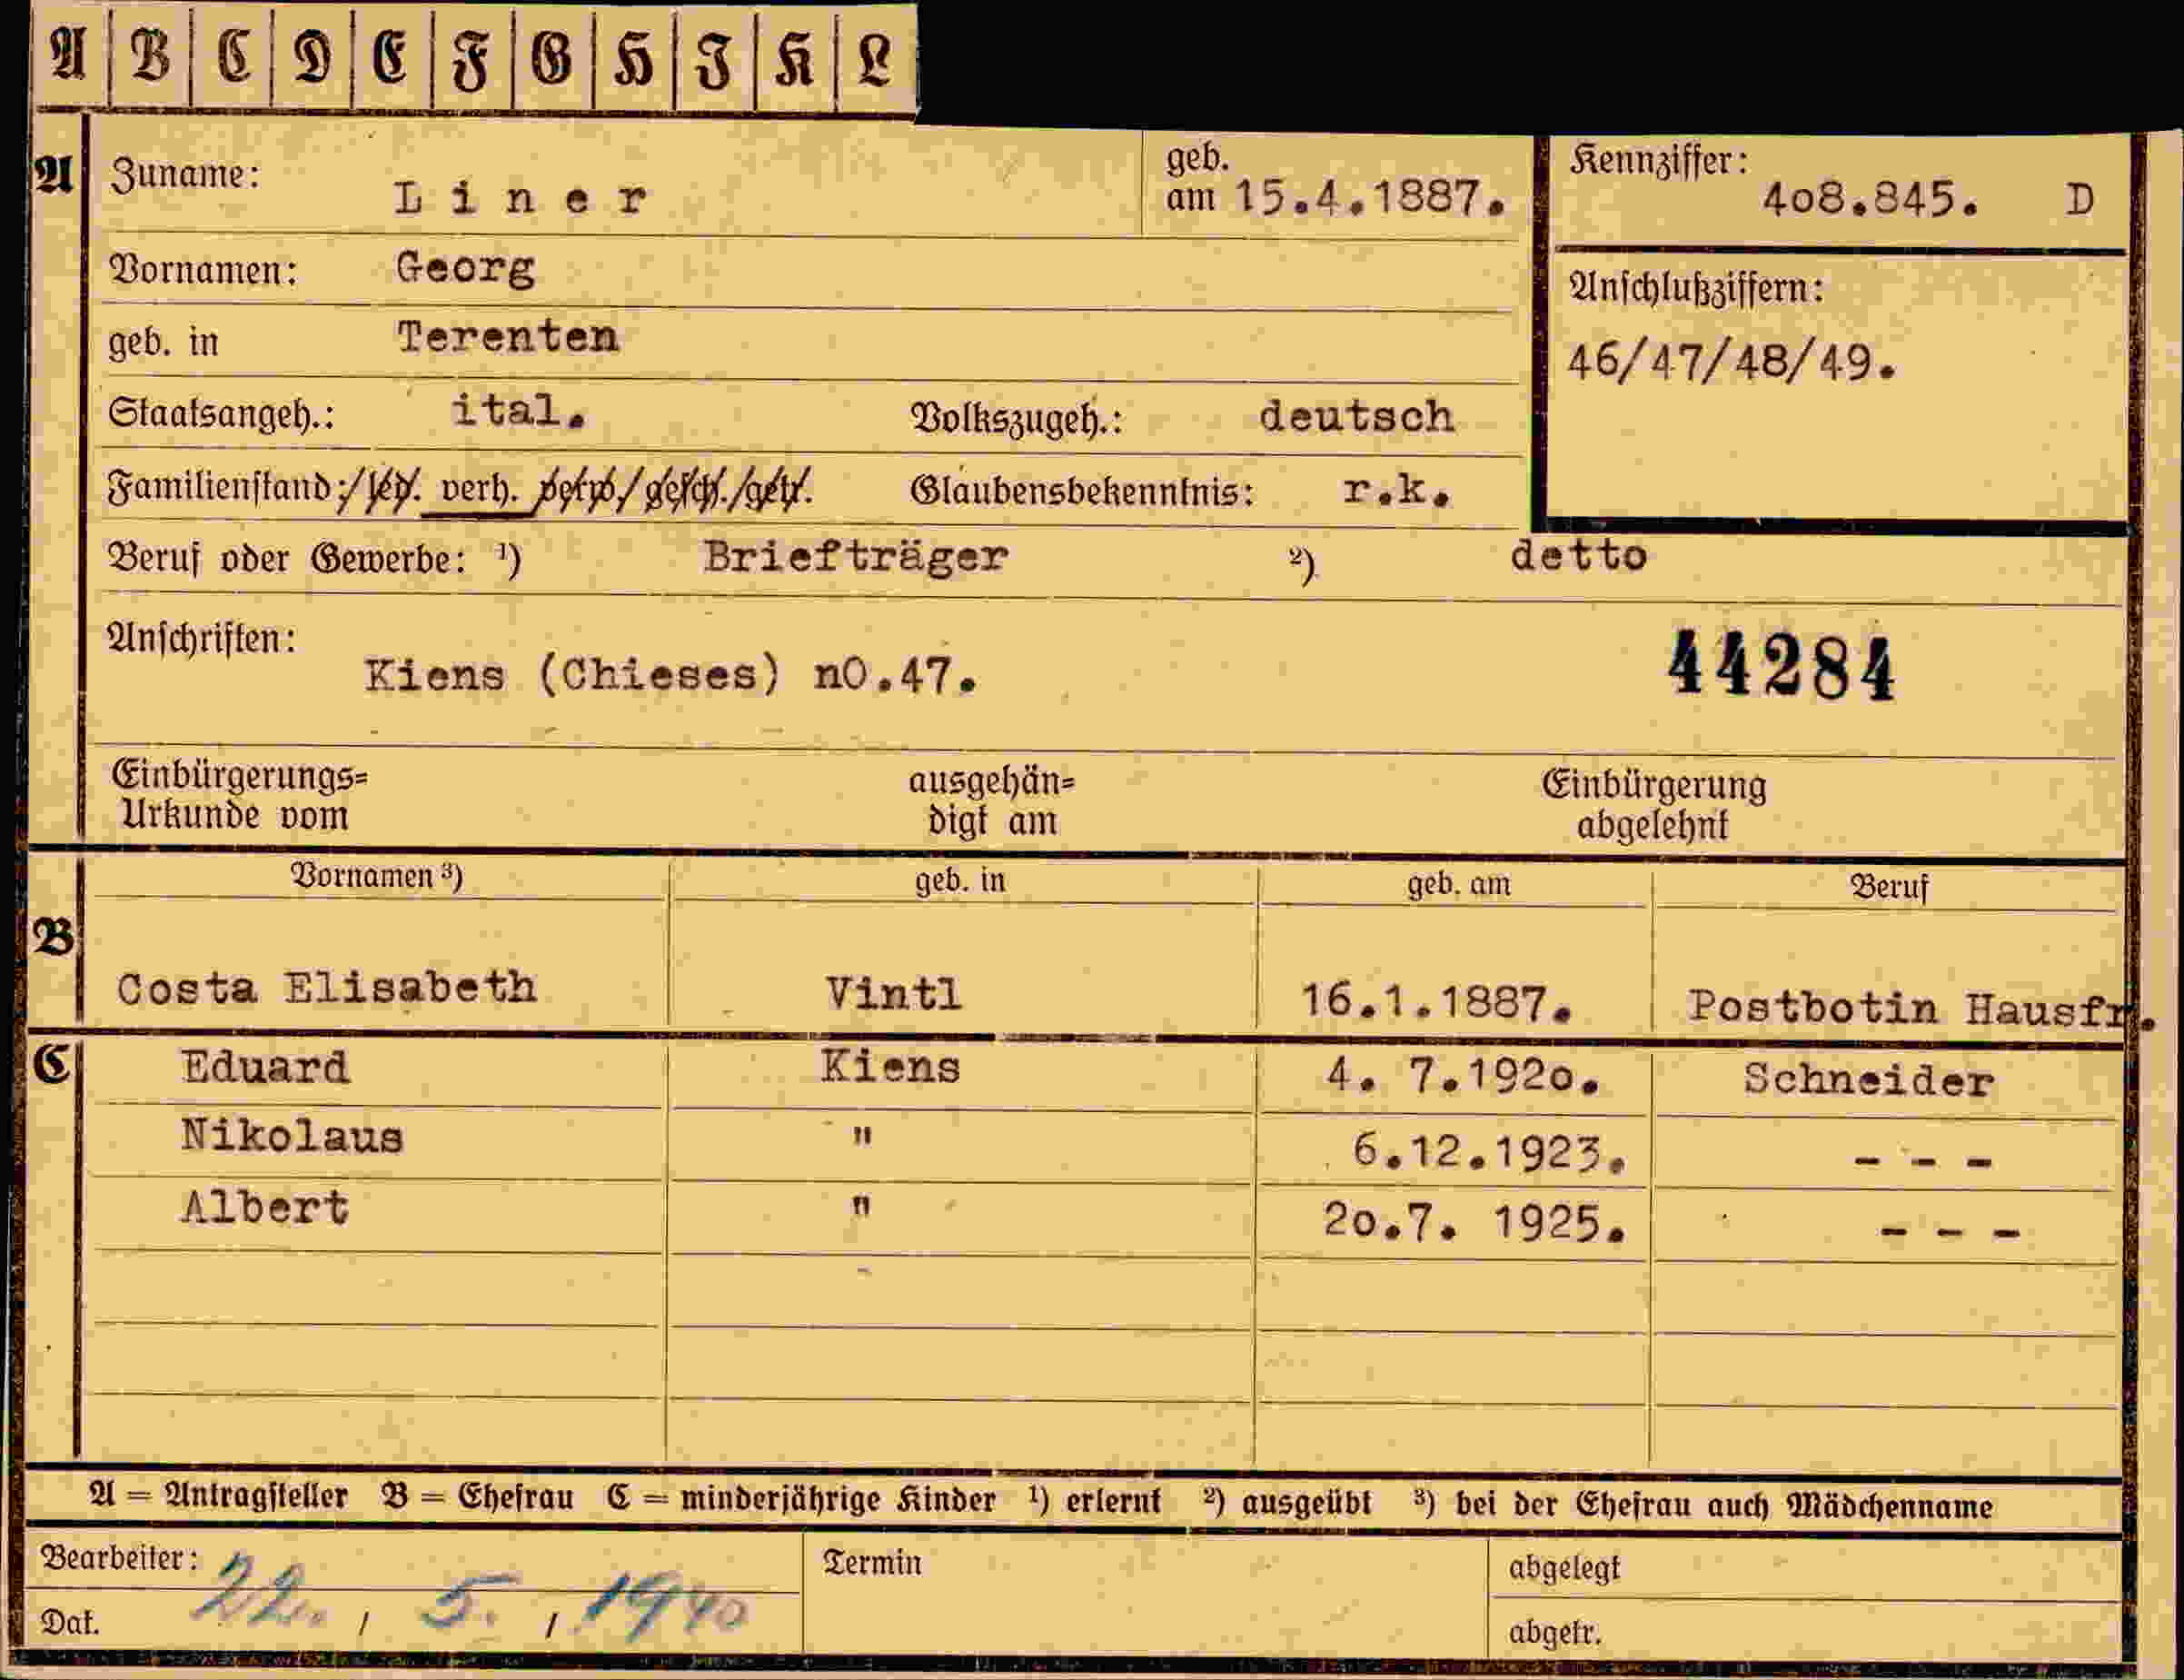 A B C D E F G H I K L
A Zuname: Liner geb. am 15.4.1887. Kennziffer: 4o8.845. D
Vornamen: Georg
geb. in Terenten Anschlußziffern:
46/47/48/49.
Staatsangeh.: ital. Volkszugeh.: deutsch
Familienstand: led. verh. verw. gesch. getr. Glaubensbekenntnis: r.k.
Beruf oder Gewerbe: ¹) Briefträger ²) detto
Anschriften: Kiens (Chieses) nO.47. 44284
Einbürgerungs= ausgehän= Einbürgerung
Urkunde vom digt am abgelehnt
Vornamen ³) geb. in geb. am Beruf
B Costa Elisabeth Vintl 16.1.1887. Postbotin Hausfr.
C Eduard Kiens 4. 7.192o. Schneider
Nikolaus " 6.12.1923. - - -
Albert " 2o.7. 1925. - - -
A = Antragsteller B = Ehefrau C = minderjährige Kinder ¹) erlernt ²) ausgeübt ³) bei der Ehefrau auch Mädchenname
Bearbeiter: Termin abgelegt
Dat. 22. / 5. / 1940 abgetr.